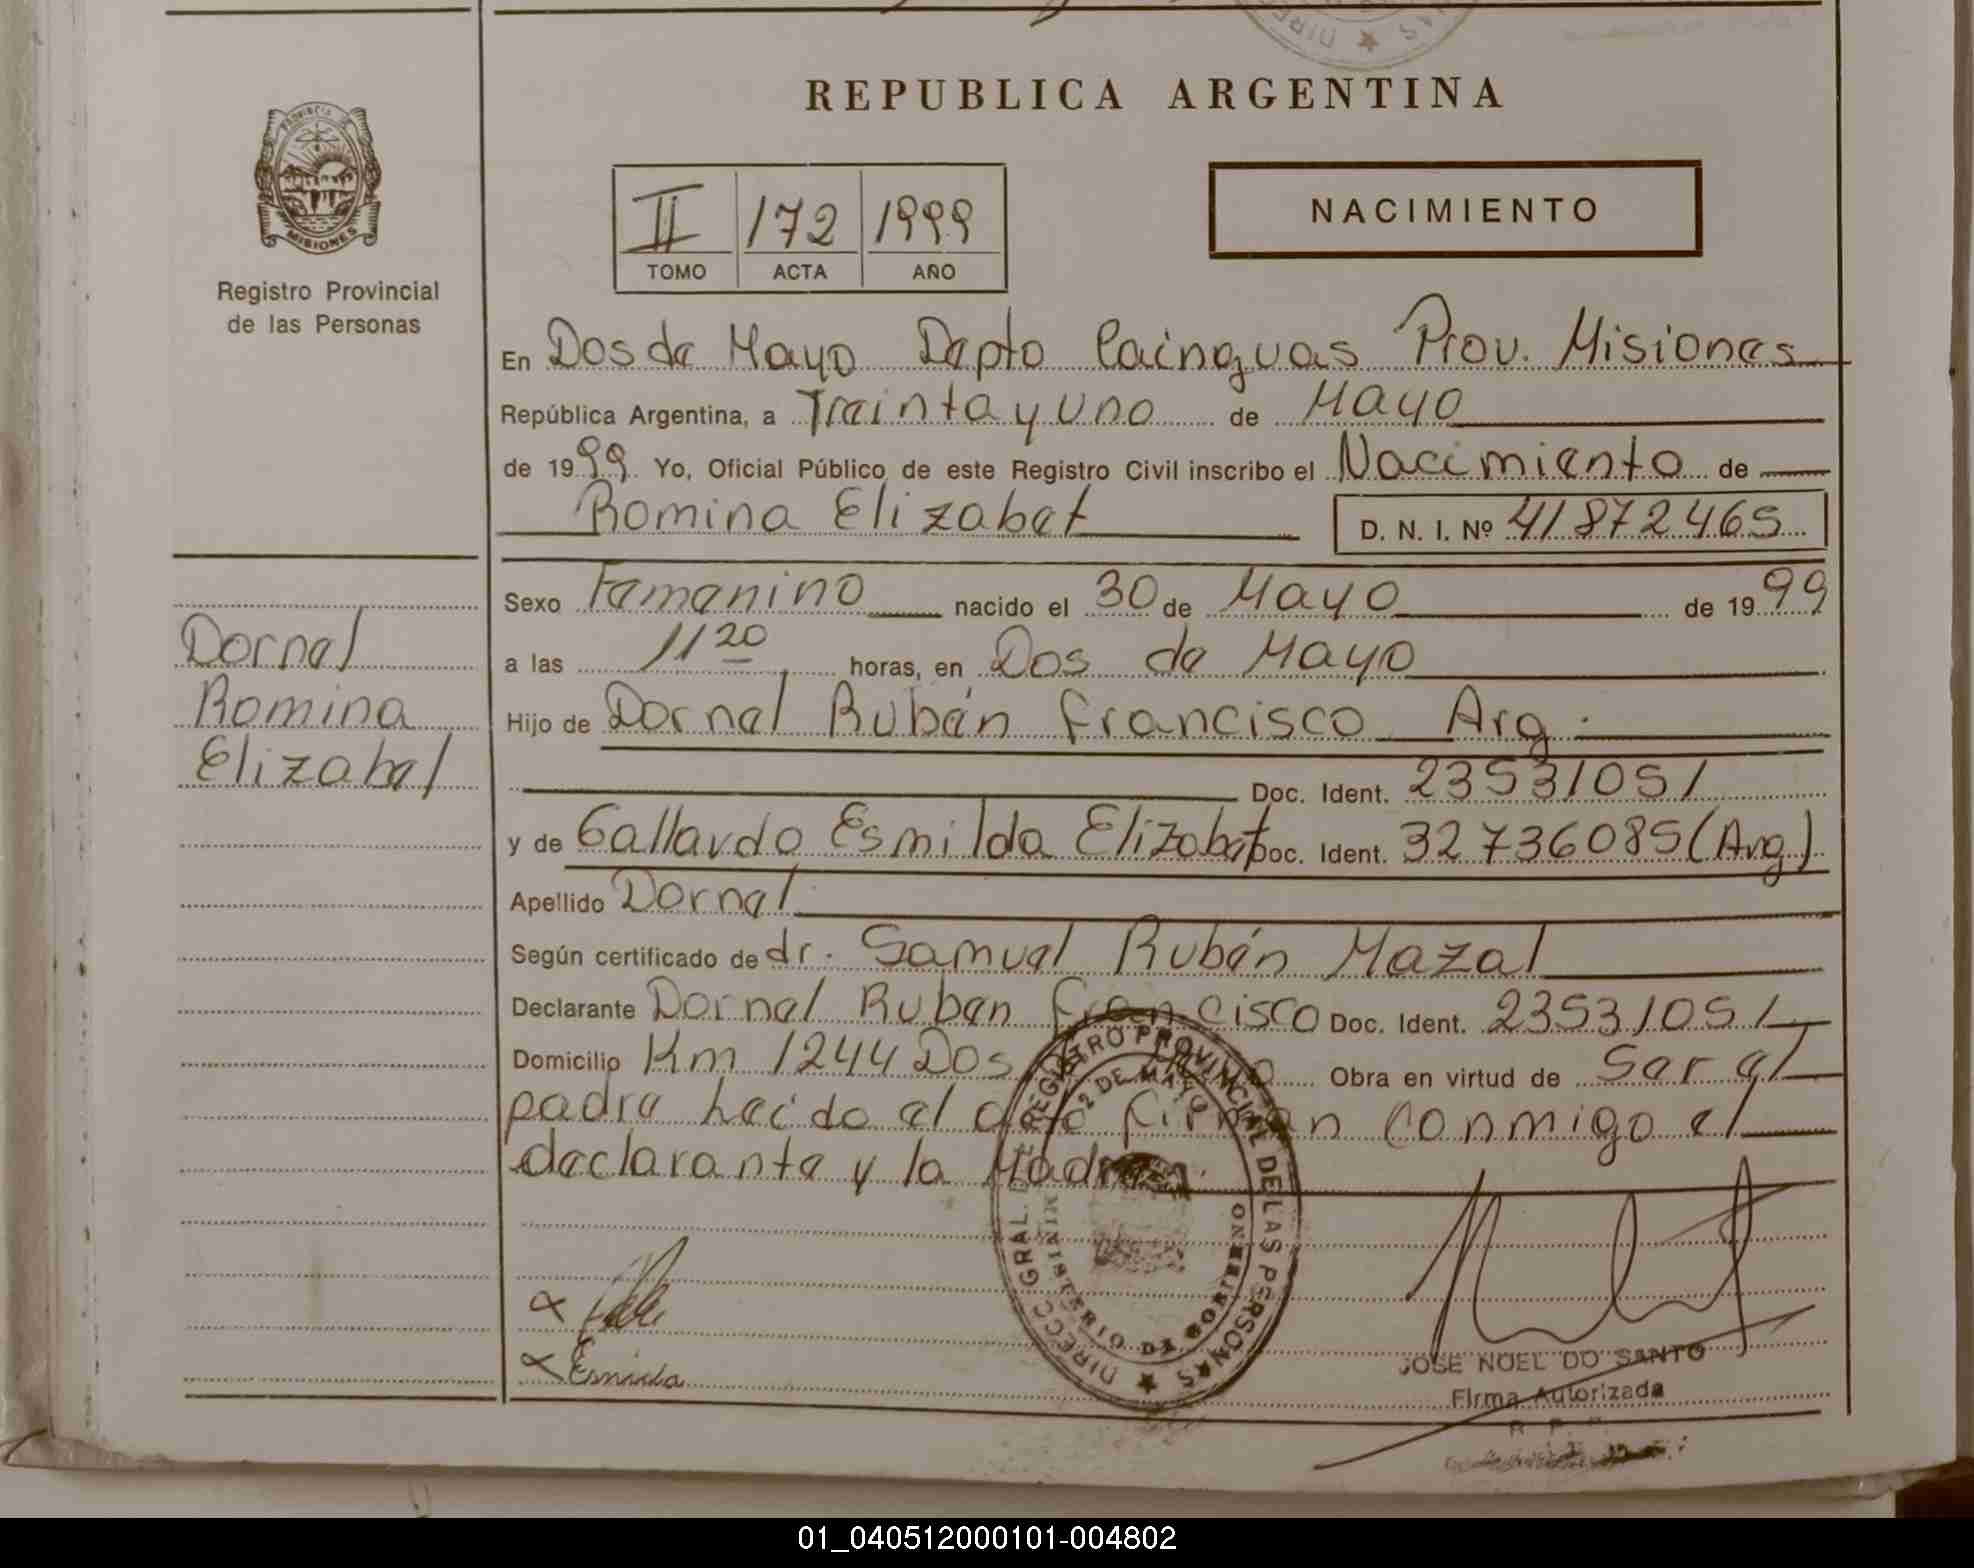 REPUBLICA ARGENTINA
PROVINCIA DE
MISIONES
Registro Provincial
de las Personas
II 172 1999
TOMO ACTA AÑO
NACIMIENTO
En Dos de Mayo Depto Cainguas Prov. Misiones
República Argentina, a Treinta y uno de Mayo
de 1999 Yo, Oficial Público de este Registro Civil inscribo el Nacimiento de
Romina Elizabet D. N. I. Nº 41872465
Sexo Femenino nacido el 30 de Mayo de 1999
a las 11 20 horas, en Dos de Mayo
Hijo de Dornel Rubén Francisco Arg.
Doc. Ident. 23531051
y de Gallardo Esmilda Elizabet Doc. Ident. 32736085 (Arg)
Apellido Dornel
Según certificado de dr. Samuel Rubén Mazal
Declarante Dornel Ruben Francisco Doc. Ident. 23531051
Domicilio Km 1244 Dos de Mayo Obra en virtud de Ser el
padre Leído el acta firman conmigo el
declarante y la Madre.
Dornel
Romina
Elizabet
DIRECC. GRAL. DE REGISTRO PROVINCIAL DE LAS PERSONAS
2 DE MAYO
MINISTERIO DE GOBIERNO
Esmilda
JOSE NOEL DO SANTO
Firma Autorizada
R. P. P.
01_040512000101-004802